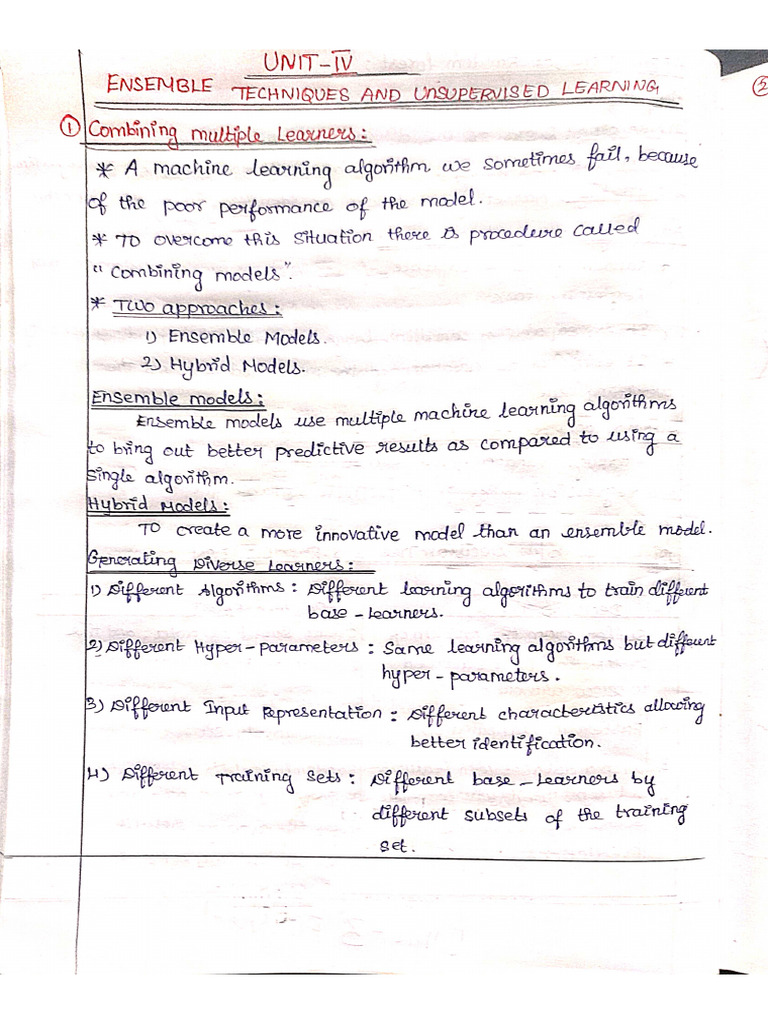 UNIT-IV
ENSEMBLE TECHNIQUES AND UNSUPERVISED LEARNING
① Combining multiple Learners:
* A machine learning algorithm we sometimes fail, because
of the poor performance of the model.
* To overcome this situation there is procedure called
"Combining models".
* Two approaches:
1) Ensemble Models.
2) Hybrid Models.
Ensemble models:
Ensemble models use multiple machine learning algorithms
to bring out better predictive results as compared to using a
single algorithm.
Hybrid Models:
To create a more innovative model than an ensemble model.
Generating Diverse Learners:
1) Different Algorithms: Different learning algorithms to train different
base-learners.
2) Different Hyper-parameters: Same learning algorithms but different
hyper-parameters.
3) Different Input Representation: Different characteristics allowing
better identification.
4) Different Training Sets: Different base-learners by
different subsets of the training
set.
②